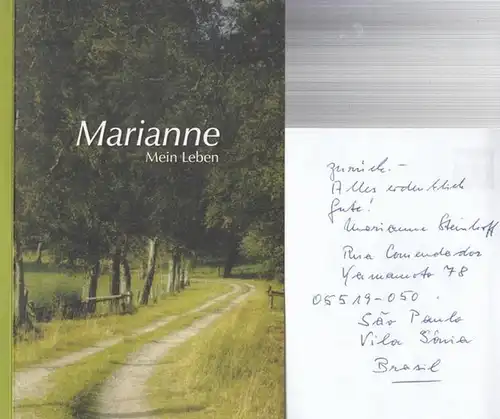 Marianne
Mein Leben
zurück.-
Alles erdenklich
Gute!
Marianne Steinhoff
Rua Comendador
Yamamoto 78
05519-050.
São Paulo
Vila Sônia
Brasil